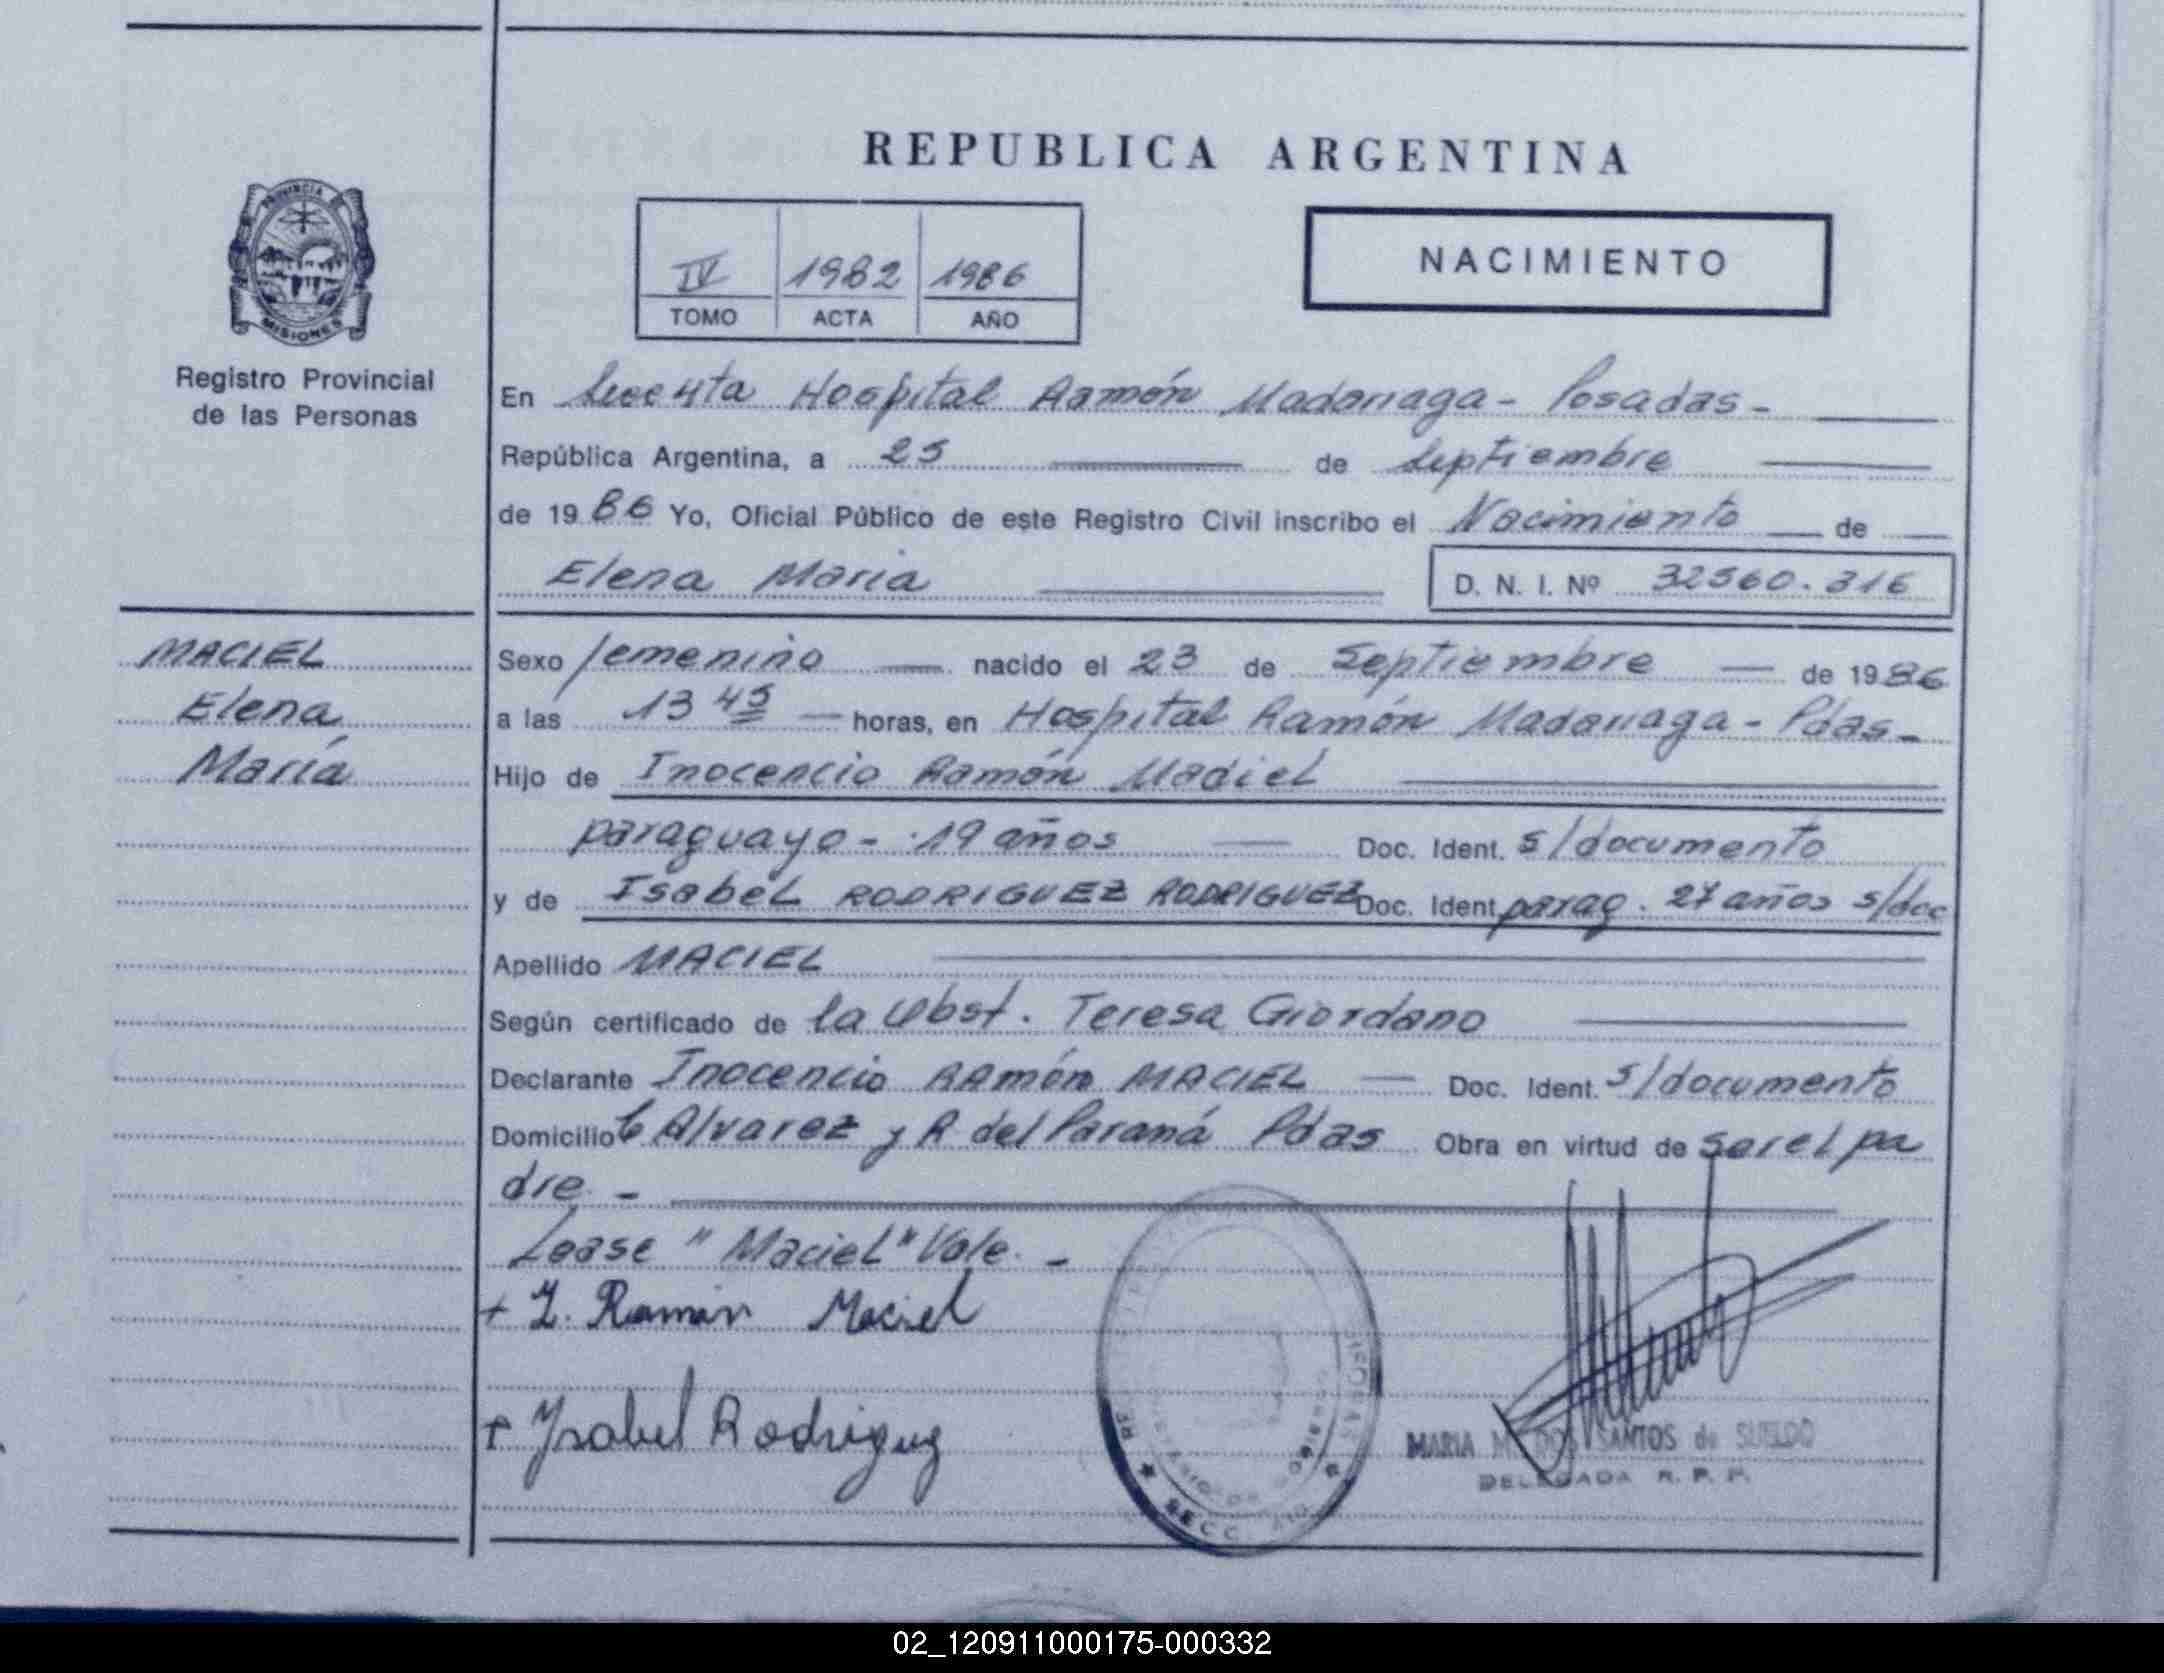 REPUBLICA ARGENTINA
PROVINCIA
MISIONES
Registro Provincial
de las Personas
IV 1982 1986
TOMO ACTA AÑO
NACIMIENTO
En Hospital Ramón Madariaga - Posadas -
República Argentina, a 25 de Septiembre
de 1986 Yo, Oficial Público de este Registro Civil inscribo el Nacimiento de
Elena Maria
D. N. I. Nº 32560.316
MACIEL
Elena
María
Sexo femenino nacido el 23 de Septiembre de 1986
a las 13 45 horas, en Hospital Ramón Madariaga - Pdas -
Hijo de Inocencio Ramón Madiel
paraguayo - 19 años Doc. Ident. s/documento
y de Isabel RODRIGUEZ RODRIGUEZ Doc. Ident. parag. 27 años s/doc
Apellido MACIEL
Según certificado de la Obst. Teresa Giordano
Declarante Inocencio RAmón MACIEL Doc. Ident. s/documento
Domicilio C Alvarez y R del Paraná Pdas Obra en virtud de ser el pa
dre. -
Lease "Maciel" Vale. -
+ I. Ramón Maciel
+ Ysabel Rodriguez
MARIA M. DOS SANTOS de SUELDO
DELEGADA R. P. P.
SECC.
02_120911000175-000332